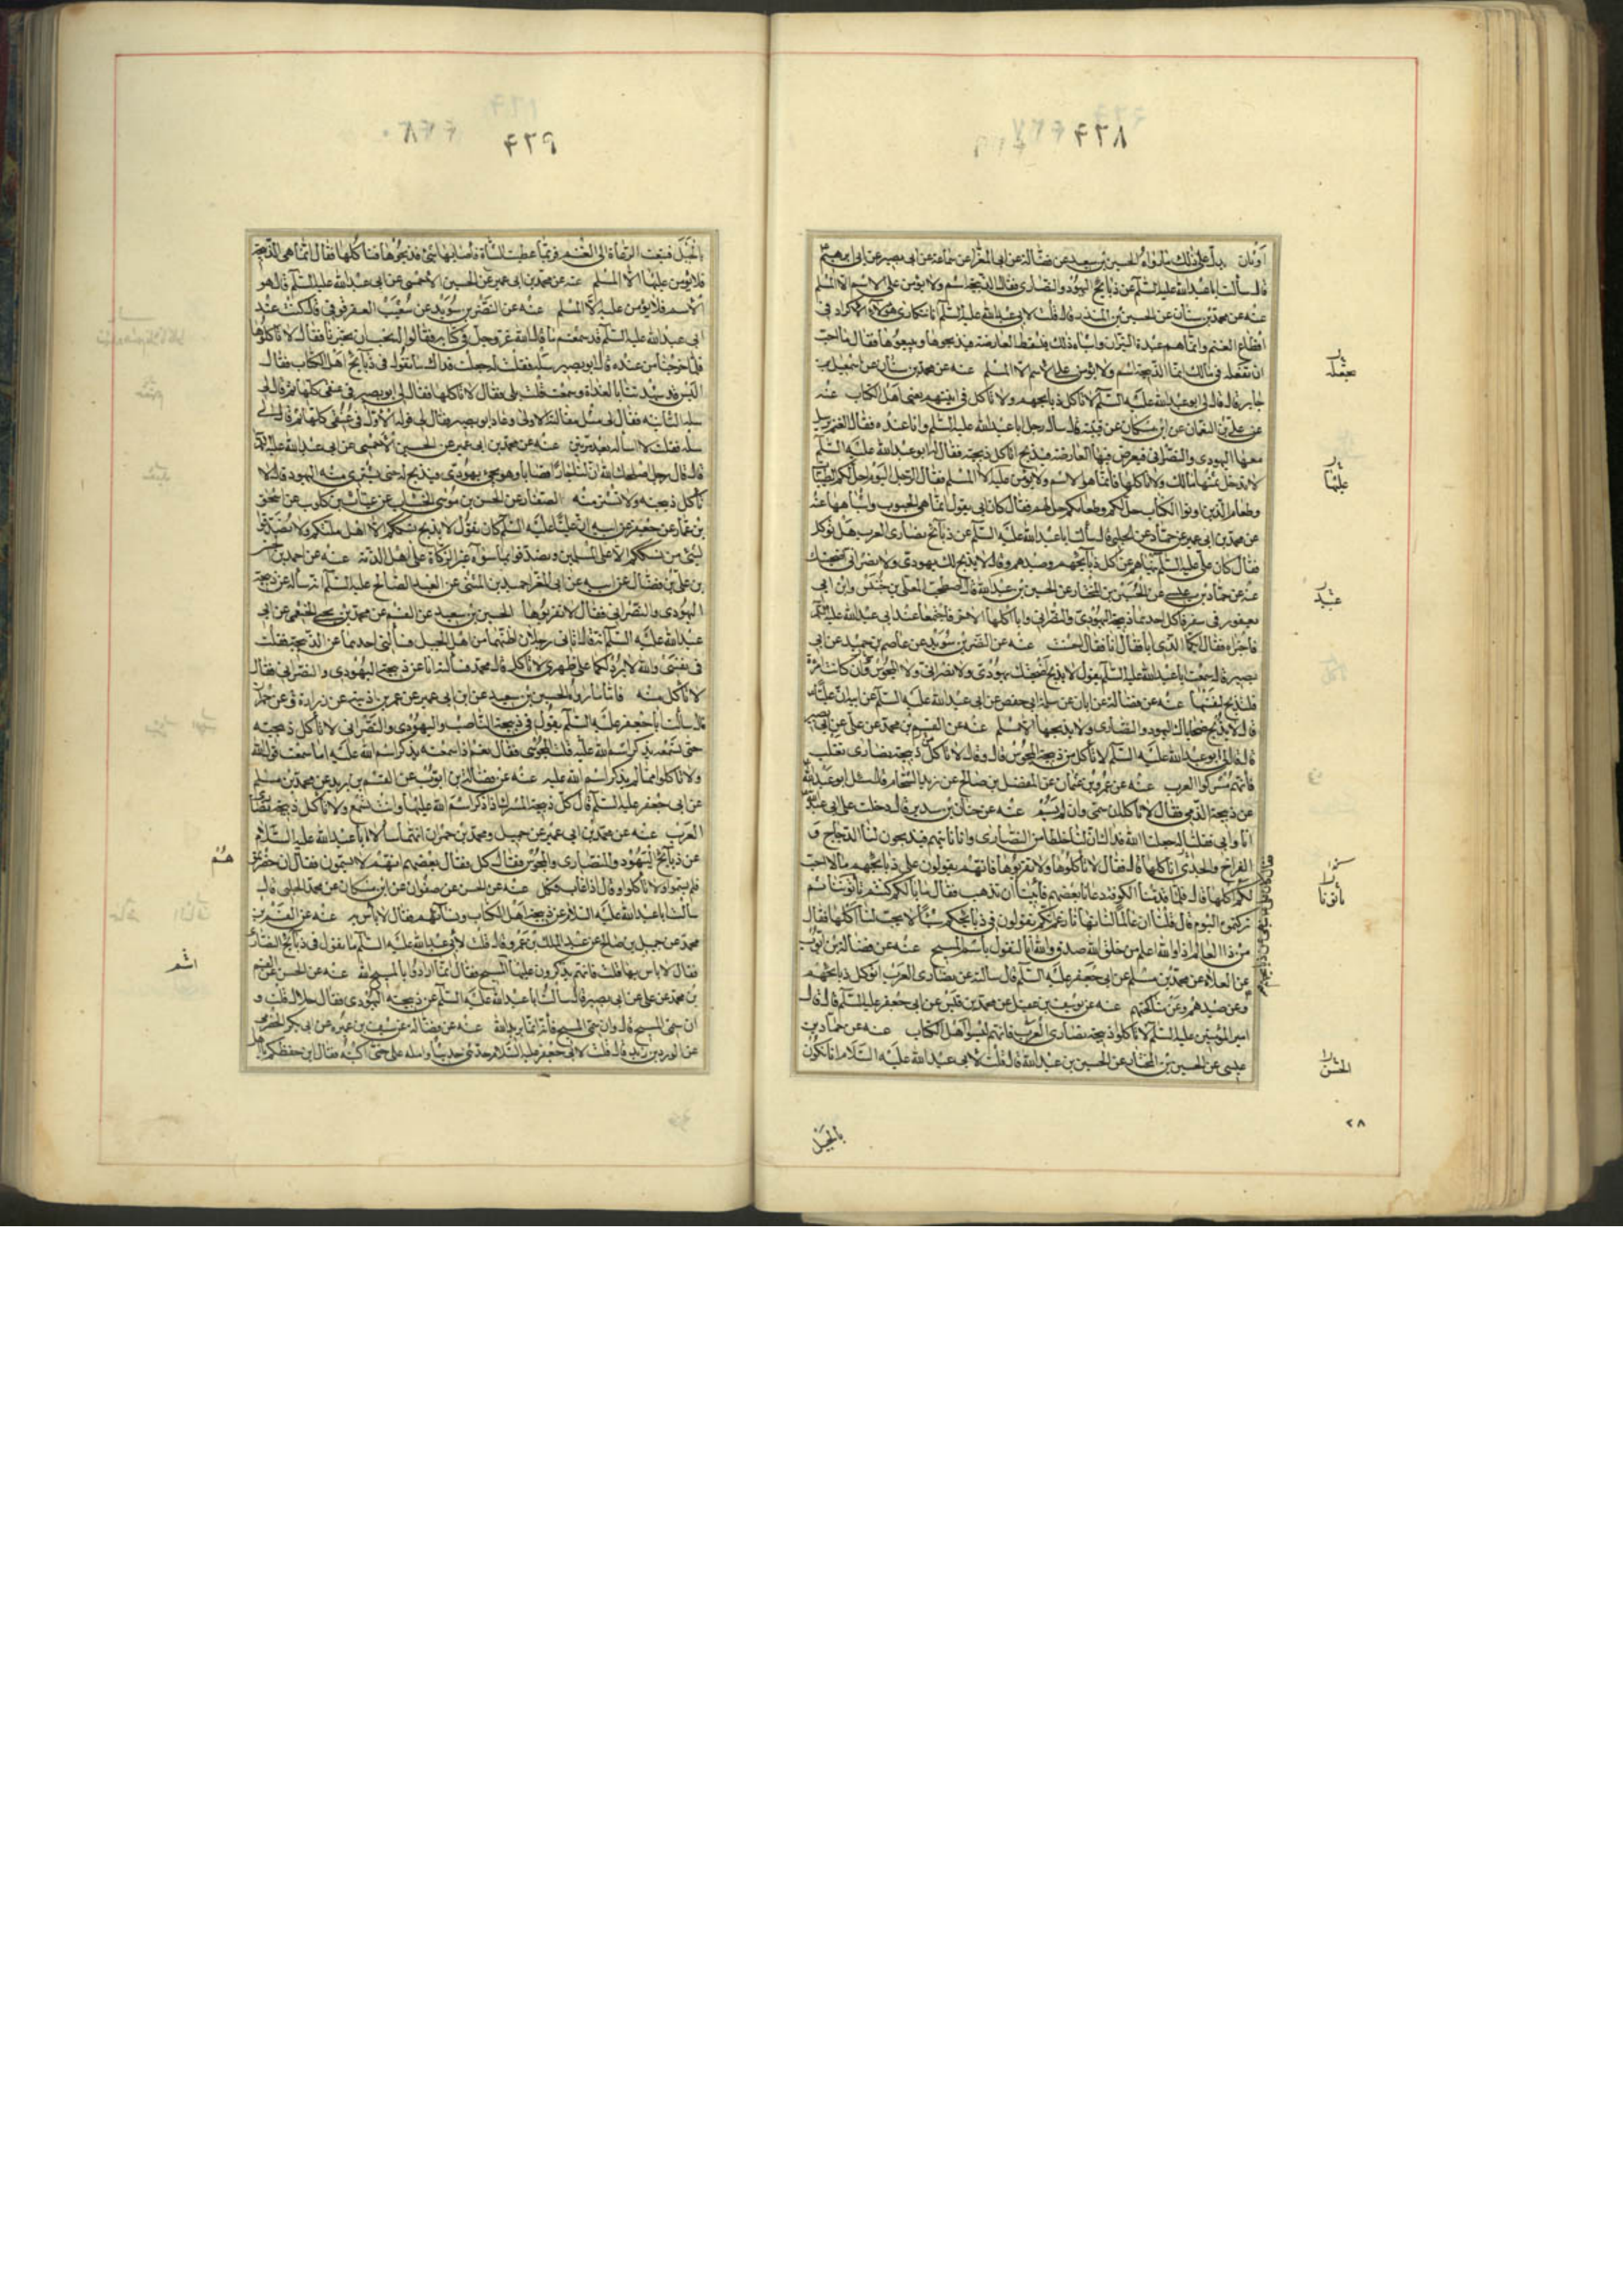 ۴۲۸
اوثان يدل على ذلك ما رواه الحسين بن سعيد عن فضالة عن ابى المغرا عن جماعة عن ابى بصير عن
قال سألت ابا عبدالله عليه السلم عن ذبايح اليهود والنصارى فقال الذبيحة اسم ولا يؤمن على الاسم الا المسلم
عنه عن محمد بن سنان عن الحسين بن المنذر قال قلت لابى عبدالله عليه السلم انا نتكارى هؤلاء الاكراد فى
اقطاع الغنم وانما هم عبدة النيران واشباه ذلك فتسقط العارضة فيذبحونها ويبيعونها فقال ما احب
ان تفعله فى مالك انما الذبيحة اسم ولا يؤمن على الاسم الا المسلم عنه عن محمد بن سنان عن اسمعيل بن
جابر قال قال لى ابو عبدالله عليه السلم لا تاكل ذبايحهم ولا تاكل فى آنيتهم يعنى اهل الكتاب عنه
عن على بن النعمان عن ابن مسكان عن قتيبة قال سأله رجل ابا عبدالله عليه السلم وانا عنده فقال الغنم يرسل
معها اليهودى والنصرانى فيعرض فيها العارضة فيذبح اناكل ذبيحته فقال له ابو عبدالله عليه السلم
لا تدخل ثمنها مالك ولا تاكلها فانما هو الاسم ولا يؤمن عليه الا المسلم فقال له الرجل اليوم احل لكم الطيبات
وطعام الذين اوتوا الكتاب حل لكم وطعامكم حل لهم فقال كان ابى يقول انما هى الحبوب واشباهها عنه
عن محمد بن ابى عمير عن حماد عن الحلبى قال سألت ابا عبدالله عليه السلم عن ذبايح نصارى العرب هل تؤكل
فقال كان على عليه السلم ينهاهم عن اكل ذبايحهم وصيدهم وقال لا يذبح لك يهودى ولا نصرانى اضحيتك
عنه عن حماد بن عيسى عن الحسين بن المختار عن الحسين بن عبدالله قال اصطحب المعلى بن خنيس وابن ابى
يعفور فى سفر فاكل احدهما ذبيحة اليهودى والنصرانى وابى اكلها الاخر فاجتمعا عند ابى عبدالله عليه السلم
فاخبراه فقال ايكما الذى ابا فقال انا فقال احسنت عنه عن النضر بن سويد عن عاصم بن حميد عن ابى
بصير قال سمعت ابا عبدالله عليه السلم يقول لا يذبح اضحيتك يهودى ولا نصرانى ولا المجوسى وان كانت امرأة
فلتذبح لنفسها عنه عن فضالة عن ابان عن سلمة ابى حفص عن ابى عبدالله عليه السلم عن ابيه ان عليا
قال لا يذبح ضحاياك اليهود والنصارى ولا يذبحها الا مسلم عنه عن القسم بن محمد عن على عن ابى بصير
قال قال لى ابو عبدالله عليه السلم لا تاكل من ذبيحة المجوسى قال وقال لا تاكل ذبيحة نصارى تغلب
فانهم مشركوا العرب عنه عن عمرو بن عثمان عن المفضل بن صالح عن زيد الشحام قال سئل ابو عبدالله
عن ذبيحة الذمى فقال لا تاكله ان سمى وان لم يسم عنه عن حنان بن سدير قال دخلت على ابى عبدالله
انا وابى فقلنا له جعلنا الله فداك ان لنا خلطا من النصارى وانا ناتيهم فيذبحون لنا الدجاج و
الفراخ والجدى اناكلها قال فقال لا تاكلوها ولا تقربوها فانهم يقولون على ذبايحهم ما لا احب
لكم اكلها قال فلما قدمنا الكوفة دعانا بعضهم فابينا ان نذهب فقال ما بالكم كنتم تاتونا ثم
تركتموه اليوم قال فقلنا ان عالما لنا نهانا زعم انكم تقولون فى ذبايحكم شيئا لا يحب لنا اكلها فقال
من ذا العالم اذا والله اعلم من خلق الله صدق والله انا لنقول باسم المسيح عنه عن فضالة بن ايوب
عن العلاء عن محمد بن مسلم عن ابى جعفر عليه السلم قال سألته عن نصارى العرب اتؤكل ذبايحهم
وعن صيدهم وعن مناكحتهم عنه عن يوسف بن عقيل عن محمد بن قيس عن ابى جعفر عليه السلم قال قال
امير المؤمنين عليه السلم لا تاكلوا ذبيحة نصارى العرب فانهم ليسوا اهل الكتاب عنه عن حماد بن
عيسى عن الحسين بن المختار عن الحسين بن عبدالله قال قلت لابى عبدالله عليه السلام انا نكون
تفعله
عليها
عبد
تأتونا
الحسن
۲۸
بالجبل
۴۲۹
بالجبل فنبعث الرعاة الى الغنم فربما عطبت الشاة فاصابها شئ فذبحوها فناكلها فقال انما هى الذبيحة
فلا يؤمن عليها الا المسلم عنه عن محمد بن ابى عمير عن الحسين الاحمسى عن ابى عبدالله عليه السلم قال هو
الاسم فلا يؤمن عليه الا المسلم عنه عن النضر بن سويد عن شعيب العقرقوفى قال كنت عند
ابى عبدالله عليه السلم
فلما خرجنا من عنده قال ابو بصير سله فقلت له جعلت فداك ما تقول فى ذبايح اهل الكتاب فقال
اليس قد شهدتنا بالغداة وسمعت قلت بلى فقال لا تاكلها فقال لى ابو بصير فى عنقى كلها ثم قال لى
سله الثانية فقال لى مثل مقالته الاولى وعاد ابو بصير فقال لى قوله الاول فى عنقى كلها ثم قال لى
سله فقلت لا اسأله بعد مرتين عنه عن محمد بن ابى عمير عن الحسين الاحمسى عن ابى عبدالله عليه السلم
قال قال رجل اصلحك الله ان لنا جارا قصابا وهو يجئ بيهودى فيذبح له حتى يشترى منه اليهود قال لا
تاكل ذبيحته ولا تشتر منه الصفار عن الحسن بن موسى الخشاب عن غياث بن كلوب عن اسحق
بن عمار عن جعفر عن ابيه ان عليا عليه السلم كان يقول لا يذبح نسككم الا اهل ملتكم ولا تصدقوا
بشئ من نسككم الا على المسلمين وتصدقوا بما سواه غير الزكاة على اهل الذمة عنه عن احمد بن الحسن
بن على بن فضال عن ابيه عن ابى المغرا حميد بن المثنى عن العبد الصالح عليه السلم انه سأله عن ذبيحة
اليهودى والنصرانى فقال لا تقربوها الحسين بن سعيد عن القسم عن محمد بن يحيى الخثعمى عن ابى
عبدالله عليه السلم انه قال اتانى رجلان اظنهما من اهل الجبل فسألنى احدهما عن الذبيحة فقلت
فى نفسى والله لا برد لكما على ظهرى لا تاكل قال محمد فسألته انا عن ذبيحة اليهودى والنصرانى فقال
لا تاكل منه فاما ما رواه الحسين بن سعيد عن ابن ابى عمير عن عمر بن اذينة عن زرارة عن حمران
قال سألت ابا جعفر عليه السلم يقول فى ذبيحة الناصب واليهودى والنصرانى لا تاكل ذبيحته
حتى تسمعه يذكر اسم الله عليه قلت المجوسى فقال نعم اذا سمعته يذكر اسم الله عليه اما سمعت قول الله
ولا تاكلوا مما لم يذكر اسم الله عليه عنه عن فضالة بن ايوب عن القسم بن بريد عن محمد بن مسلم
عن ابى جعفر عليه السلم قال كل ذبيحة المشرك اذا ذكر اسم الله عليها وانت تسمع ولا تاكل ذبيحة نصارى
العرب عنه عن محمد بن ابى عمير عن جميل ومحمد بن حمران انهما سألا ابا عبدالله عليه السلام
عن ذبايح اليهود والنصارى والمجوس فقال كل فقال بعضهم انهم لا يسمون فقال ان حضرتموهم
فلم يسموا ولا تاكلوا وقال اذا غاب فكل عنه عن الحسن عن صفوان عن ابن مسكان عن محمد الحلبى قال
سألت ابا عبدالله عليه السلام عن ذبيحة اهل الكتاب ونسائهم فقال لا بأس به عنه عن القسم بن
محمد عن جميل بن صالح عن عبد الملك بن عمرو قال قلت لابى عبدالله عليه السلم ما تقول فى ذبايح النصارى
فقال لا باس بها قلت فانهم يذكرون عليها المسيح فقال انما ارادوا بالمسيح الله عنه عن الحسن عن القسم
بن محمد عن على عن ابى بصير قال سألت ابا عبدالله عليه السلم عن ذبيحة اليهودى فقال حلال قلت و
ان سمى المسيح قال وان سمى المسيح فانه انما يريد الله عنه عن فضالة عن سيف بن عميرة عن ابى بكر الحضرمى
عن الورد بن زيد قال قلت لابى جعفر عليه السلام حدثنى حديثا وامله على حتى اكتبه فقال اين حفظكم يا اهل
هم
اسم